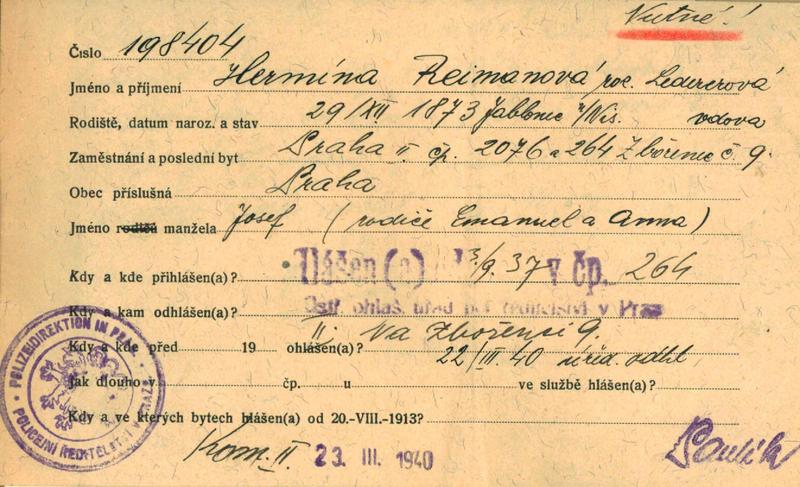 Nutné!
Číslo 198404
Jméno a příjmení Hermína Reimanová roz. Ledererová
Rodiště, datum naroz. a stav 29/XII 1873 Jablonec n/Nis. vdova
Zaměstnání a poslední byt Praha II. čp. 2076 a 264 Zbořenec č. 9
Obec příslušná Praha
Jméno rodičů manžela Josef (rodiče Emanuel a Anna)
Kdy a kde přihlášen(a)? Hlášen(a) 3/9. 37 v čp. 264
Kdy a kam odhlášen(a)? Ústř. ohlaš. úřad pol. ředitelství v Praze
II. Na Zbořenci 9.
Kdy a kde před 19 ohlášen(a)? 22/III. 40 úřed. odhl
Jak dlouho v čp. u ve službě hlášen(a)?
Kdy a ve kterých bytech hlášen(a) od 20.-VIII.-1913?
Kom. II. 23. III. 1940
POLIZEIDIREKTION IN
POLICEJNÍ ŘEDITELSTVÍ V PRAZE